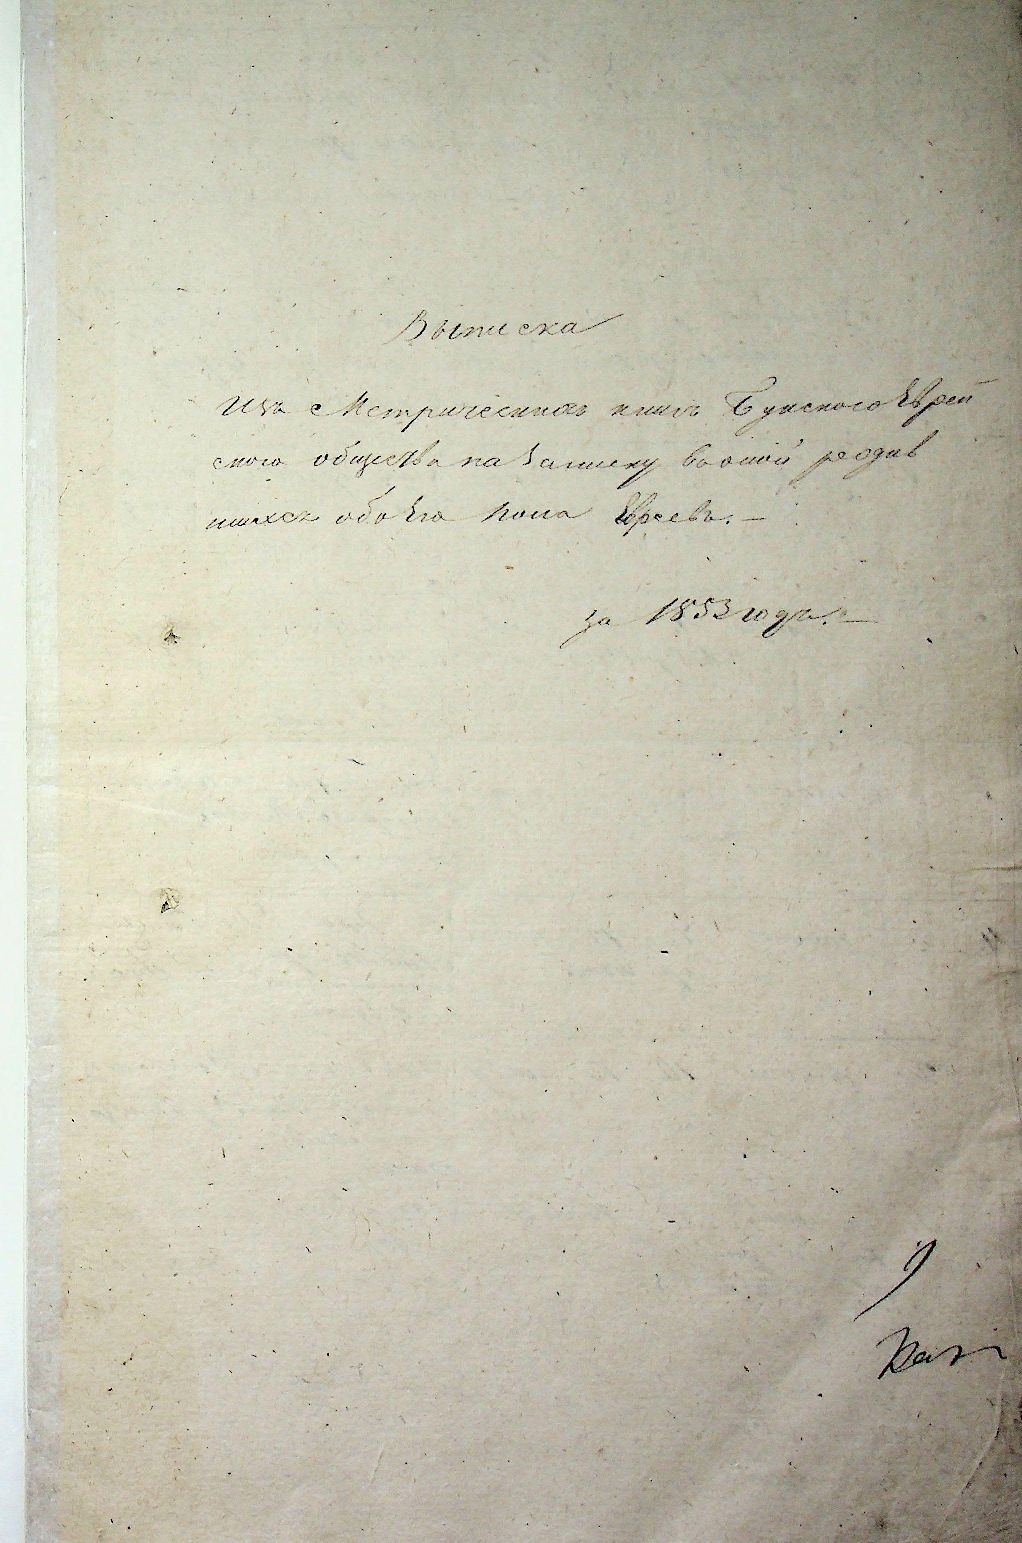 Выписка
Изъ Метрическихъ книгъ Букского Еврей
ского общества на записку въ оной родив
шихся обоего пола Евреевъ. —
за 1853 годъ. —
9